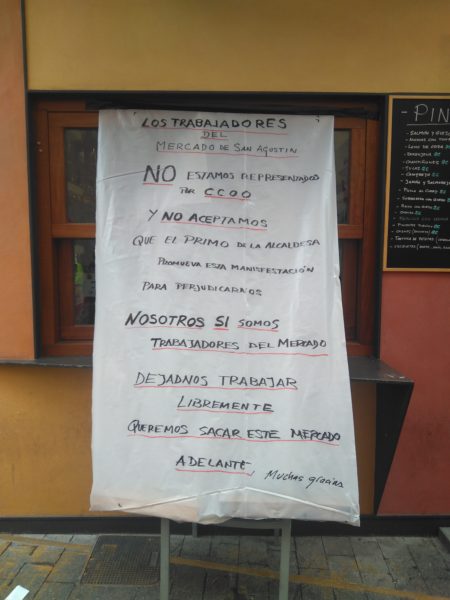 LOS TRABAJADORES
DEL
MERCADO DE SAN AGUSTIN
NO ESTAMOS REPRESENTADOS
POR CCOO
Y NO ACEPTAMOS
QUE EL PRIMO DE LA ALCALDESA
PROMUEVA ESTA MANIFESTACIÓN
PARA PERJUDICARNOS
NOSOTROS SI SOMOS
TRABAJADORES DEL MERCADO
DEJADNOS TRABAJAR
LIBREMENTE
QUEREMOS SACAR ESTE MERCADO
ADELANTE, Muchas gracias
- PIN